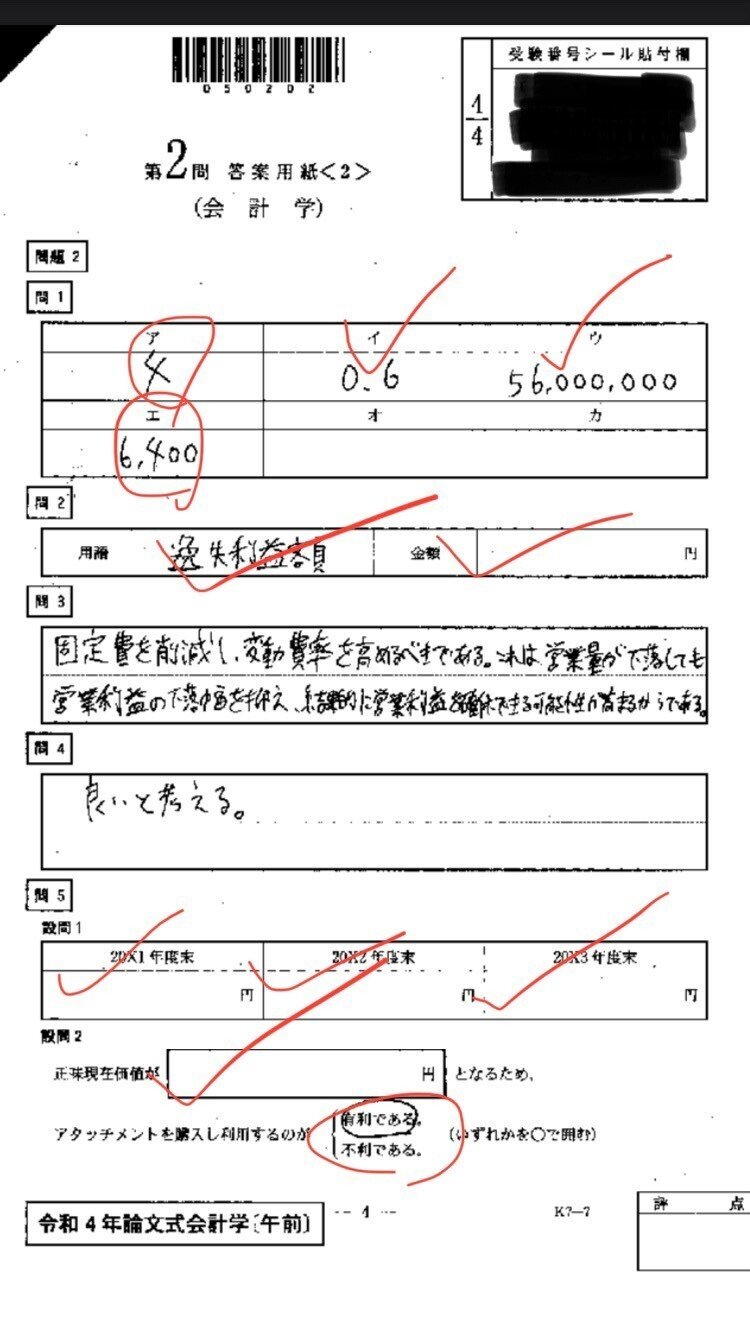 050202
受験番号シール貼付欄
1/4
第2問 答案用紙<2>
(会計学)
問題2
問1
ア イ ウ
4 0.6 56,000,000
エ オ カ
6,400
問2
用語 逸失利益客員 金額 円
問3
固定費を削減し、変動費率を高めるべきである。これは営業量が下落しても
営業利益の下落幅を抑え、結果的に営業利益を確保できる可能性が高まるからである。
問4
良いと考える。
問5
設問1
20X1年度末 20X2年度末 20X3年度末
円 円 円
設問2
正味現在価値が 円 となるため、
アタッチメントを購入し利用するのが 有利である。 (いずれかを○で囲む)
不利である。
-- 4 --
K7-7
評点
令和4年論文式会計学〔午前〕